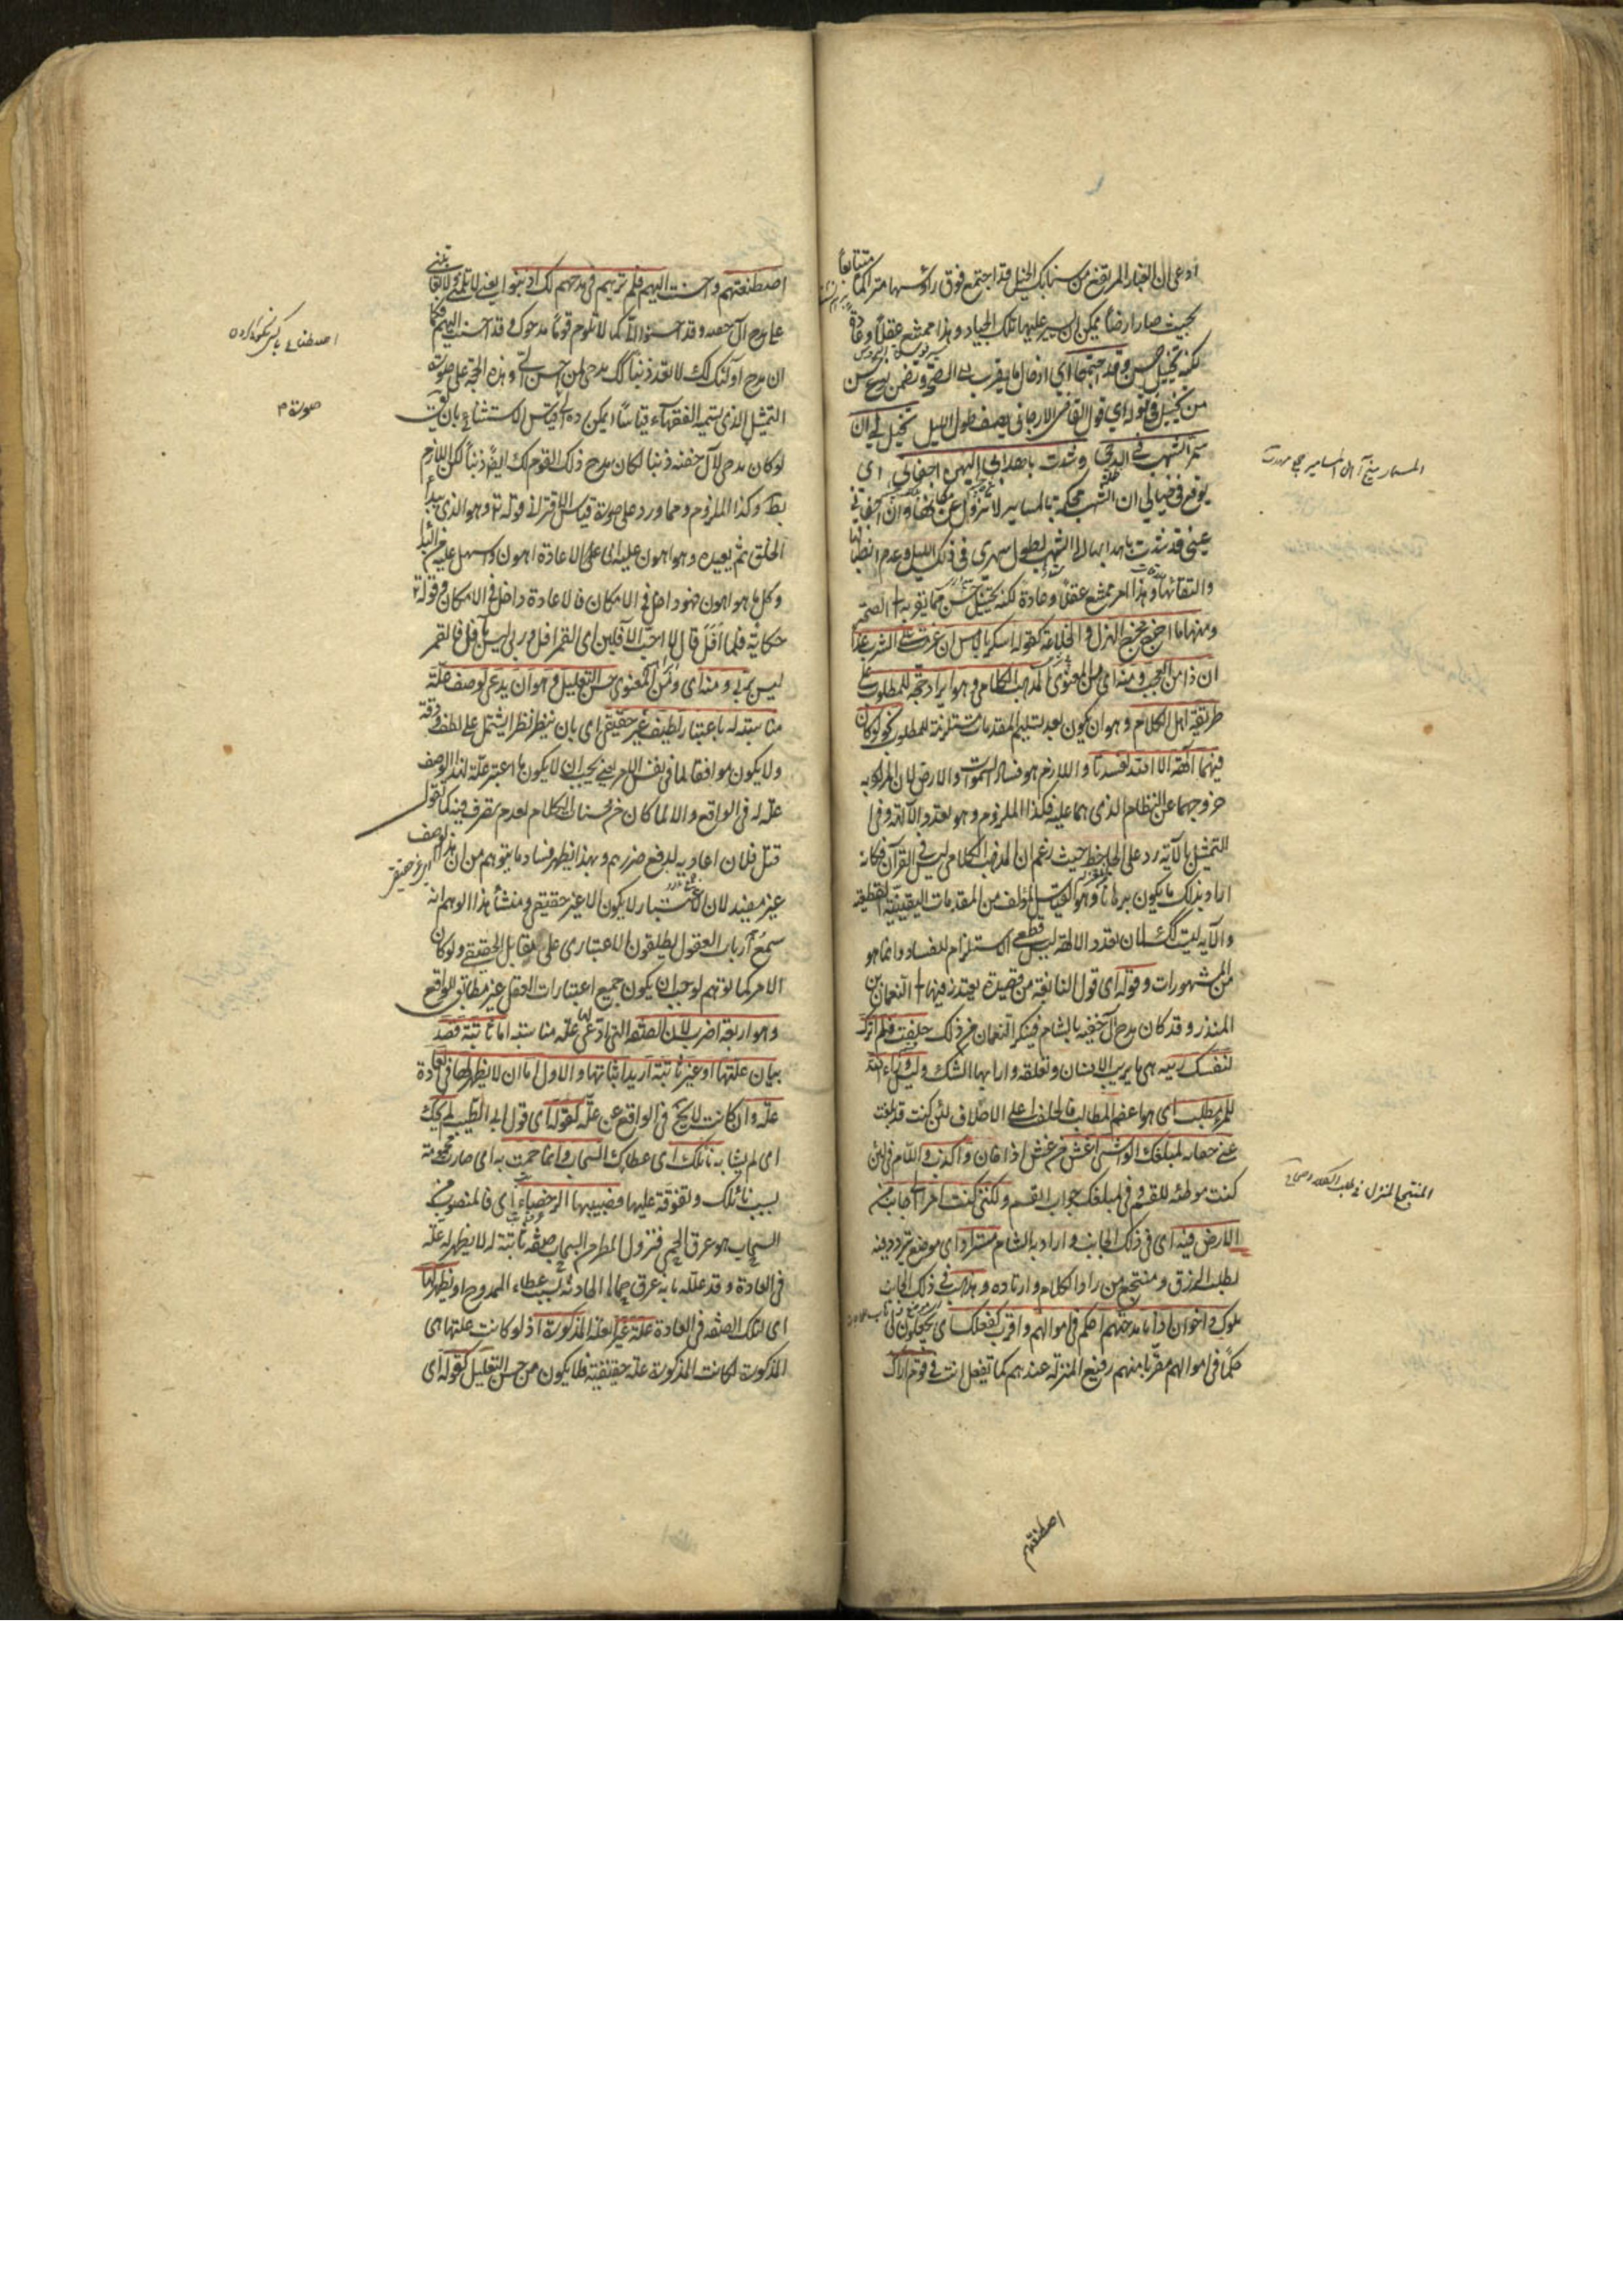 ادعى ان الغبار المرتفع من سنابك الخيل قد اجتمع فوق رؤسها متراكما متتابعا
بحيث صار ارضا يمكن ان يسير عليها تلك الجياد وهذا ممتنع عقلا وعادة
لكنه تخييل حسن وقد اجتمعا اي ادخال ما يقرب الى الصحة وتضمن نوع حسن
من تخييل في قوله اي قول القاضي الارجاني يصف طول الليل تخيل لي ان
سمر الشهب في الدجى وشدت باهدابي اليهن اجفاني اي
يوقع في خيالي ان الشهب محكمة بالمسامير لا تزول عن مكانها وان اجفان
عيني قد شدت باهدابها الى الشهب لطول سهري في ذلك الليل وعدم انطباقها
والتقائها وهذا امر ممتنع عقلا وعادة لكنه تخييل حسن مما يقربه الى الصحة
ومنها ما اخرج مخرج الهزل والخلاعة كقوله اسكر بالامس ان عزمت على الشرب غدا
ان ذا من العجب ومنه اي من المعنوي المذهب الكلامي وهو ايراد حجة للمطلوب على
طريقة اهل الكلام وهو ان يكون بعد تسليم المقدمات مستلزمة للمطلوب نحو لو كان
فيهما آلهة الا الله لفسدتا واللازم وهو فساد السموات والارض لان المراد به
خروجهما عن النظام الذي هما عليه فكذا الملزوم وهو تعدد الآلهة وفي
التمثيل بالآية رد على الجاحظ حيث زعم ان المذهب الكلامي ليس في القرآن فكانه
اراد بذلك ما يكون برهانا وهو القياس المؤلف من المقدمات اليقينية القطعية
والآية ليست كذلك لان تعدد الالهة ليس قطعي الاستلزام للفساد وانما هو
من المشهورات وقوله اي قول النابغة من قصيدة يعتذر فيها الى النعمان بن
المنذر وقد كان مدح آل جفنة بالشام فتنكر النعمان من ذلك حلفت فلم اترك
لنفسك ريبة هي ما يريب الانسان وتعلقه وارابها الشك وليس وراء الله
للمرء مطلب اي هو اعظم المطالب فالحلف به اعلى الاحلاف لئن كنت قد بلغت
عني خيانة لمبلغك الواشي اغش من غش اذا خان واكذب واللام في لئن
كنت موطئة للقسم وفي لمبلغك جواب القسم ولكنني كنت امرأ لي جانب من
الارض فيه اي في ذلك الجانب واراد به الشام مستراد اي موضع يتردد فيه
لطلب الرزق ومنتجع من راد الكلاء وارتاده ومذهب في ذلك الجانب
ملوك واخوان اذا ما مدحتهم احكم في اموالهم واقرب كفعلك اي يجعلون لي
حكما في اموالهم مقربا منهم رفيع المنزلة عندهم كما تفعل انت في قوم اراك
اصطنعتهم
اصطنعتهم واحسنت اليهم فلم ترهم في مدحهم لك اذنبوا يعني لا تلمني ولا تعاتبني
على مدح آل جفنة وقد احسنوا الي كما لا تلوم قوما مدحوك وقد احسنت اليهم فكما
ان مدح اولئك لك لا تعد ذنبا كذلك مدحي لمن احسن الي وهذه الحجة على صورة
التمثيل الذي يسميه الفقهاء قياسا ويمكن رده الى قياس استثنائي بان يقال
لو كان مدحي لآل جفنة ذنبا لكان مدح ذلك القوم لك ايضا ذنبا لكن اللازم
بط وكذا الملزوم ومما ورد على صورة قياس الاقتراني قوله تع وهو الذي يبدأ
الخلق ثم يعيده وهو اهون عليه اي على الاعادة اهون واسهل عليه من البدأ
وكل ما هو اهون فهو داخل في الامكان فالاعادة داخل في الامكان وقوله تع
حكاية فلما افل قال لا احب الآفلين اي القمر افل وربي ليس بآفل فالقمر
ليس بربي ومنه اي ومن المعنوي حسن التعليل وهو ان يدعى لوصف علة
مناسبة له باعتبار لطيف غير حقيقي اي بان ينظر نظرا يشتمل على لطف ودقة
ولا يكون موافقا لما في نفس الامر يعني يجب ان لا يكون ما اعتبر علة لهذا الوصف
علة له في الواقع والا لما كان من محسنات الكلام لعدم تصرف فيه كما تقول
قتل فلان اعاديه لدفع ضررهم وبهذا يظهر فساد ما يتوهم من ان هذا الوصف
غير مفيد لان الاعتبار لا يكون الا غير حقيقي ومنشأ هذا الوهم انه
سمع ارباب العقول يطلقون الاعتباري على مقابل الحقيقي ولو كان
الامر كما توهم لوجب ان يكون جميع اعتبارات العقل غير مطابق للواقع
وهو اربعة اضرب لان الصفة التي ادعى لها علة مناسبة اما ثابتة قصد
بيان علتها او غير ثابتة اريد اثباتها والاول اما ان لا يظهر لها في العادة
علة وان كانت لا تخلو في الواقع عن علة كقوله اي قول ابي الطيب لم يحك
اي لم يشابه نائلك اي عطاءك السحاب وانما حمت به اي صارت محمومة
بسبب نائلك وتفوقه عليها فصبيبها الرحضاء اي فالمصبوب من
السحاب هو عرق الحمى فنزول المطر من السحاب صفة ثابتة له لا يظهر له علة
في العادة وقد علله بانه عرق حماها الحادثة بسبب عطاء الممدوح او يظهر لها
اي لتلك الصفة في العادة علة غير العلة المذكورة اذ لو كانت علتها هي
المذكورة لكانت المذكورة علة حقيقية فلا يكون من حسن التعليل كقوله اي